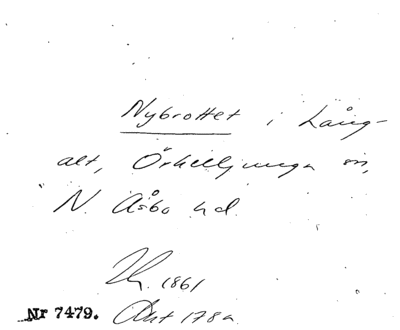 Nybrottet i Lång-
alt, Örkelljunga sn,
N. Åsbo hd.
1861
Nr 7479. Akt 178a